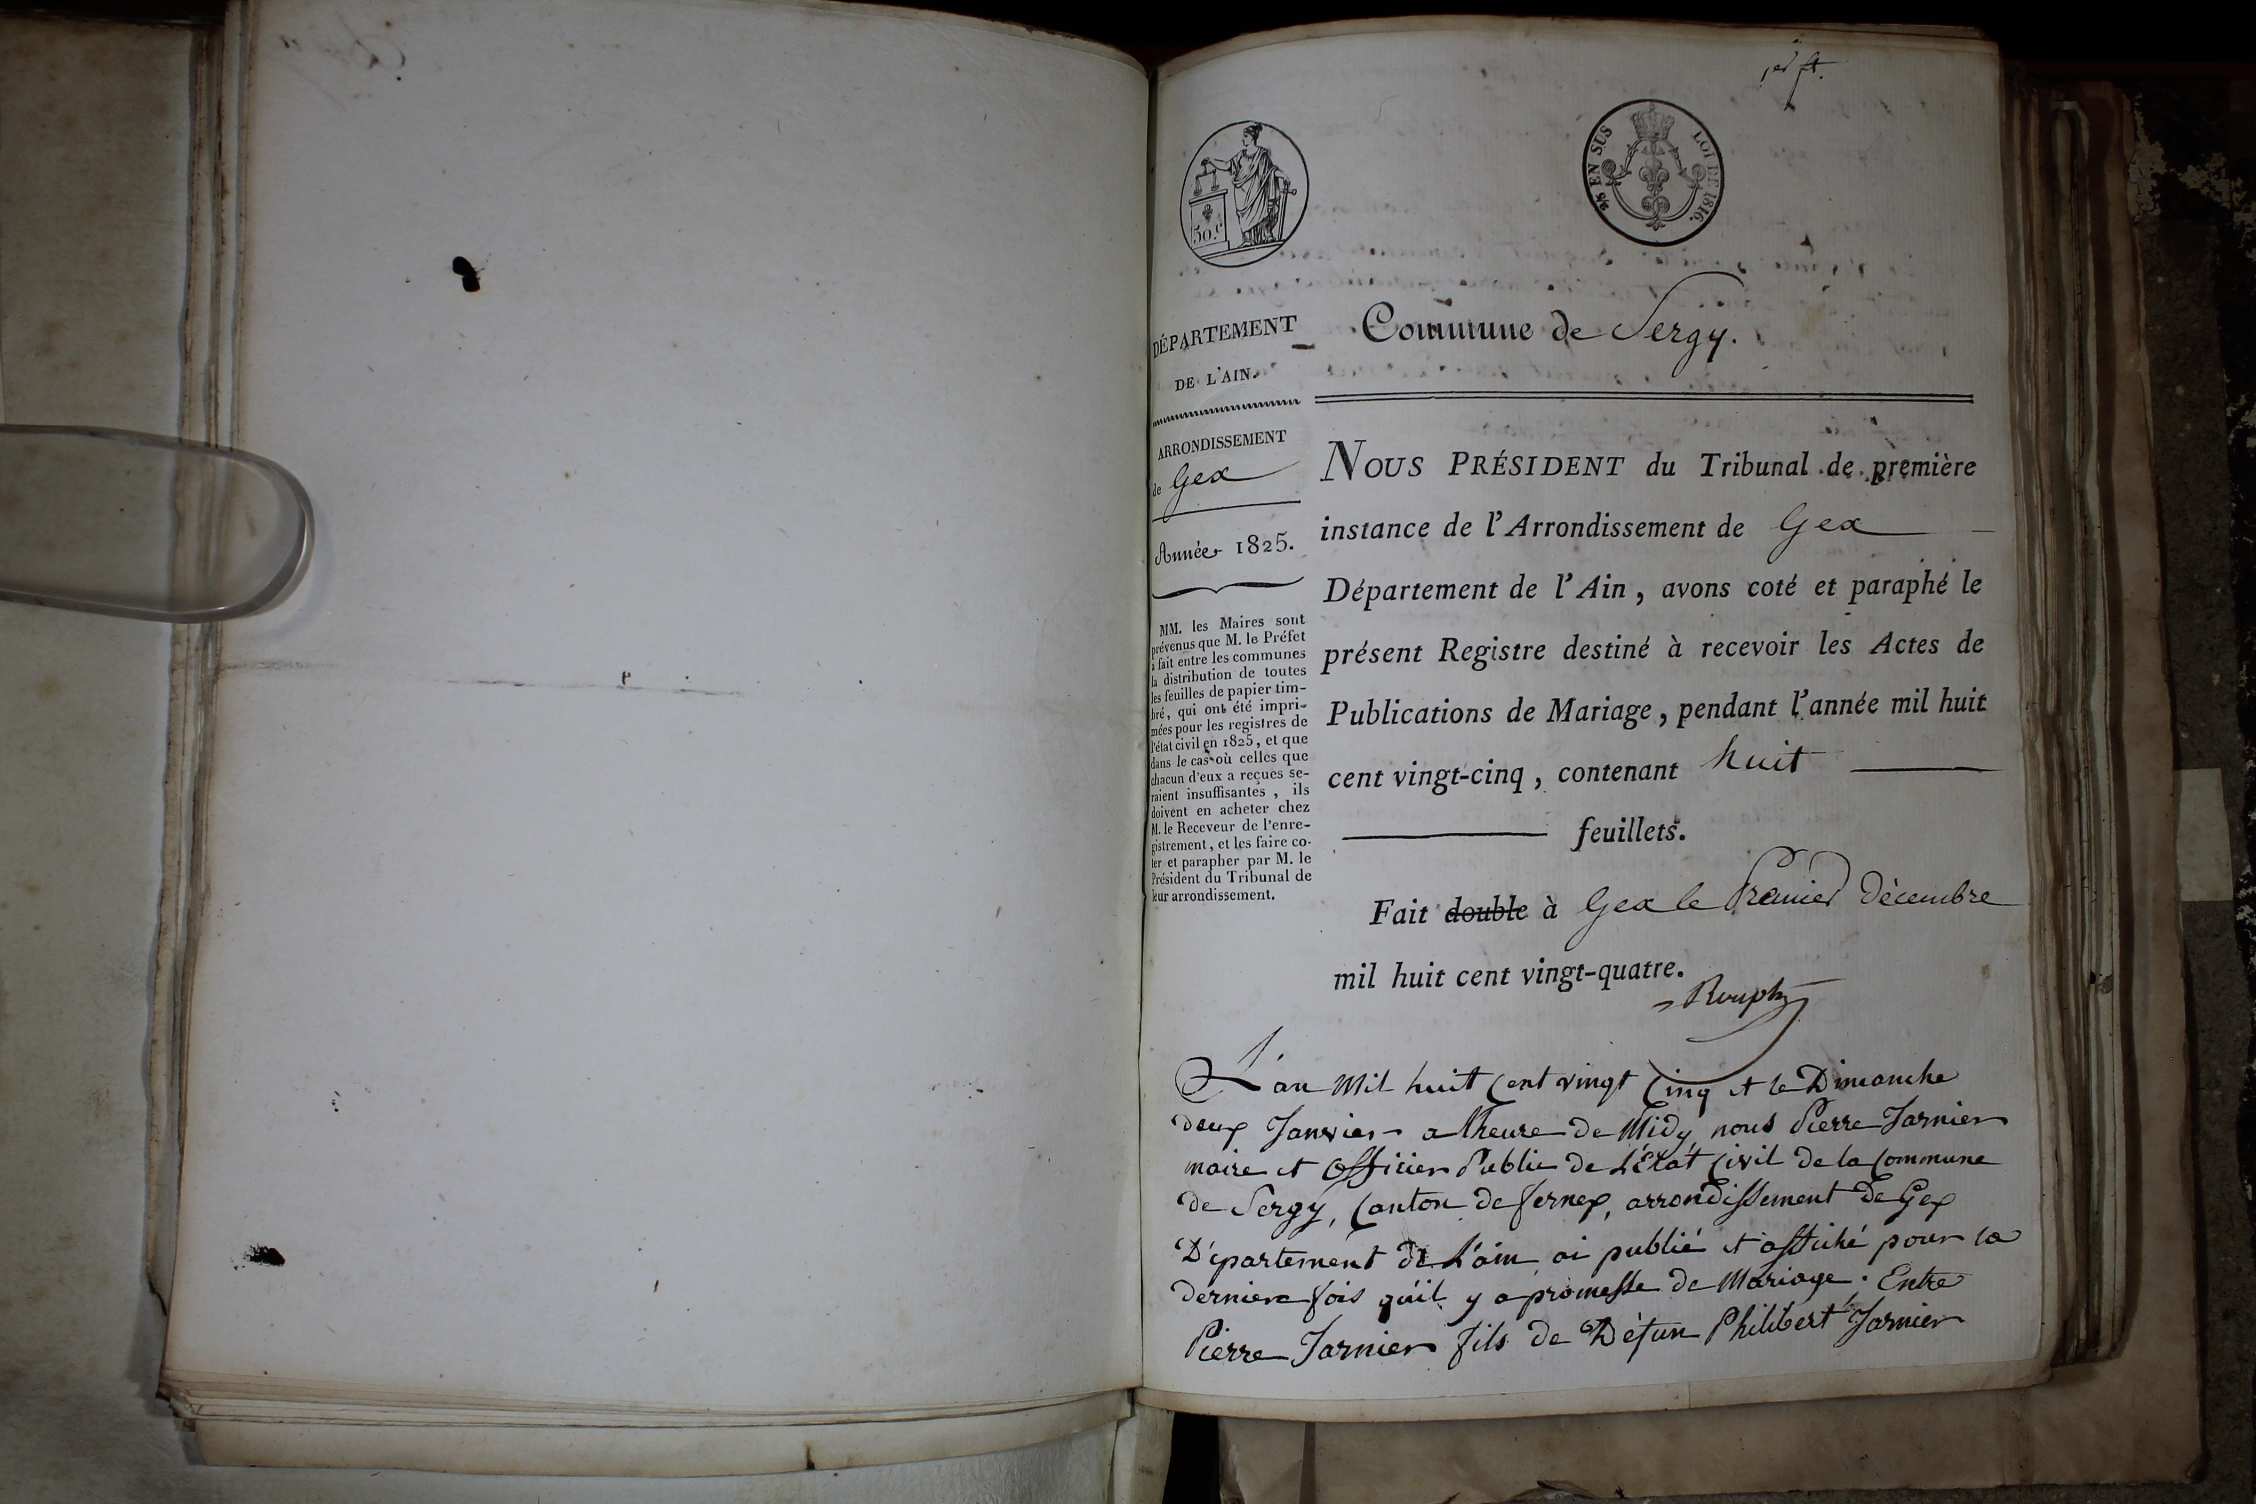 1er ft.
50.c
2/5 EN SUS
LOI DE 1816.
DÉPARTEMENT
DE L'AIN.
ARRONDISSEMENT
de Gex
Année 1825.
MM. les Maires sont
prévenus que M. le Préfet
a fait entre les communes
la distribution de toutes
les feuilles de papier tim-
bré, qui ont été impri-
mées pour les registres de
l'état civil en 1825, et que
dans le cas où celles que
chacun d'eux a reçues se-
raient insuffisantes, ils
doivent en acheter chez
M. le Receveur de l'enre-
gistrement, et les faire co-
ter et parapher par M. le
Président du Tribunal de
leur arrondissement.
Commune de Sergy.
NOUS PRÉSIDENT du Tribunal de première
instance de l'Arrondissement de Gex
Département de l'Ain, avons coté et paraphé le
présent Registre destiné à recevoir les Actes de
Publications de Mariage, pendant l'année mil huit
cent vingt-cinq, contenant huit
feuillets.
Fait double à Gex le Premier Décembre
mil huit cent vingt-quatre.
L'an Mil huit Cent vingt Cinq et le Dimanche
deux Janvier a Lheure de Midy nous Pierre Jarnier
maire et Officier Public de L'État Civil de la Commune
de Sergy, Canton de fernex, arrondissement De Gex
Département de L'ain ai publié et affiché pour la
derniere fois qu'il y a promesse de Mariage. Entre
Pierre Jarnier fils de Défun Philibert Jarnier